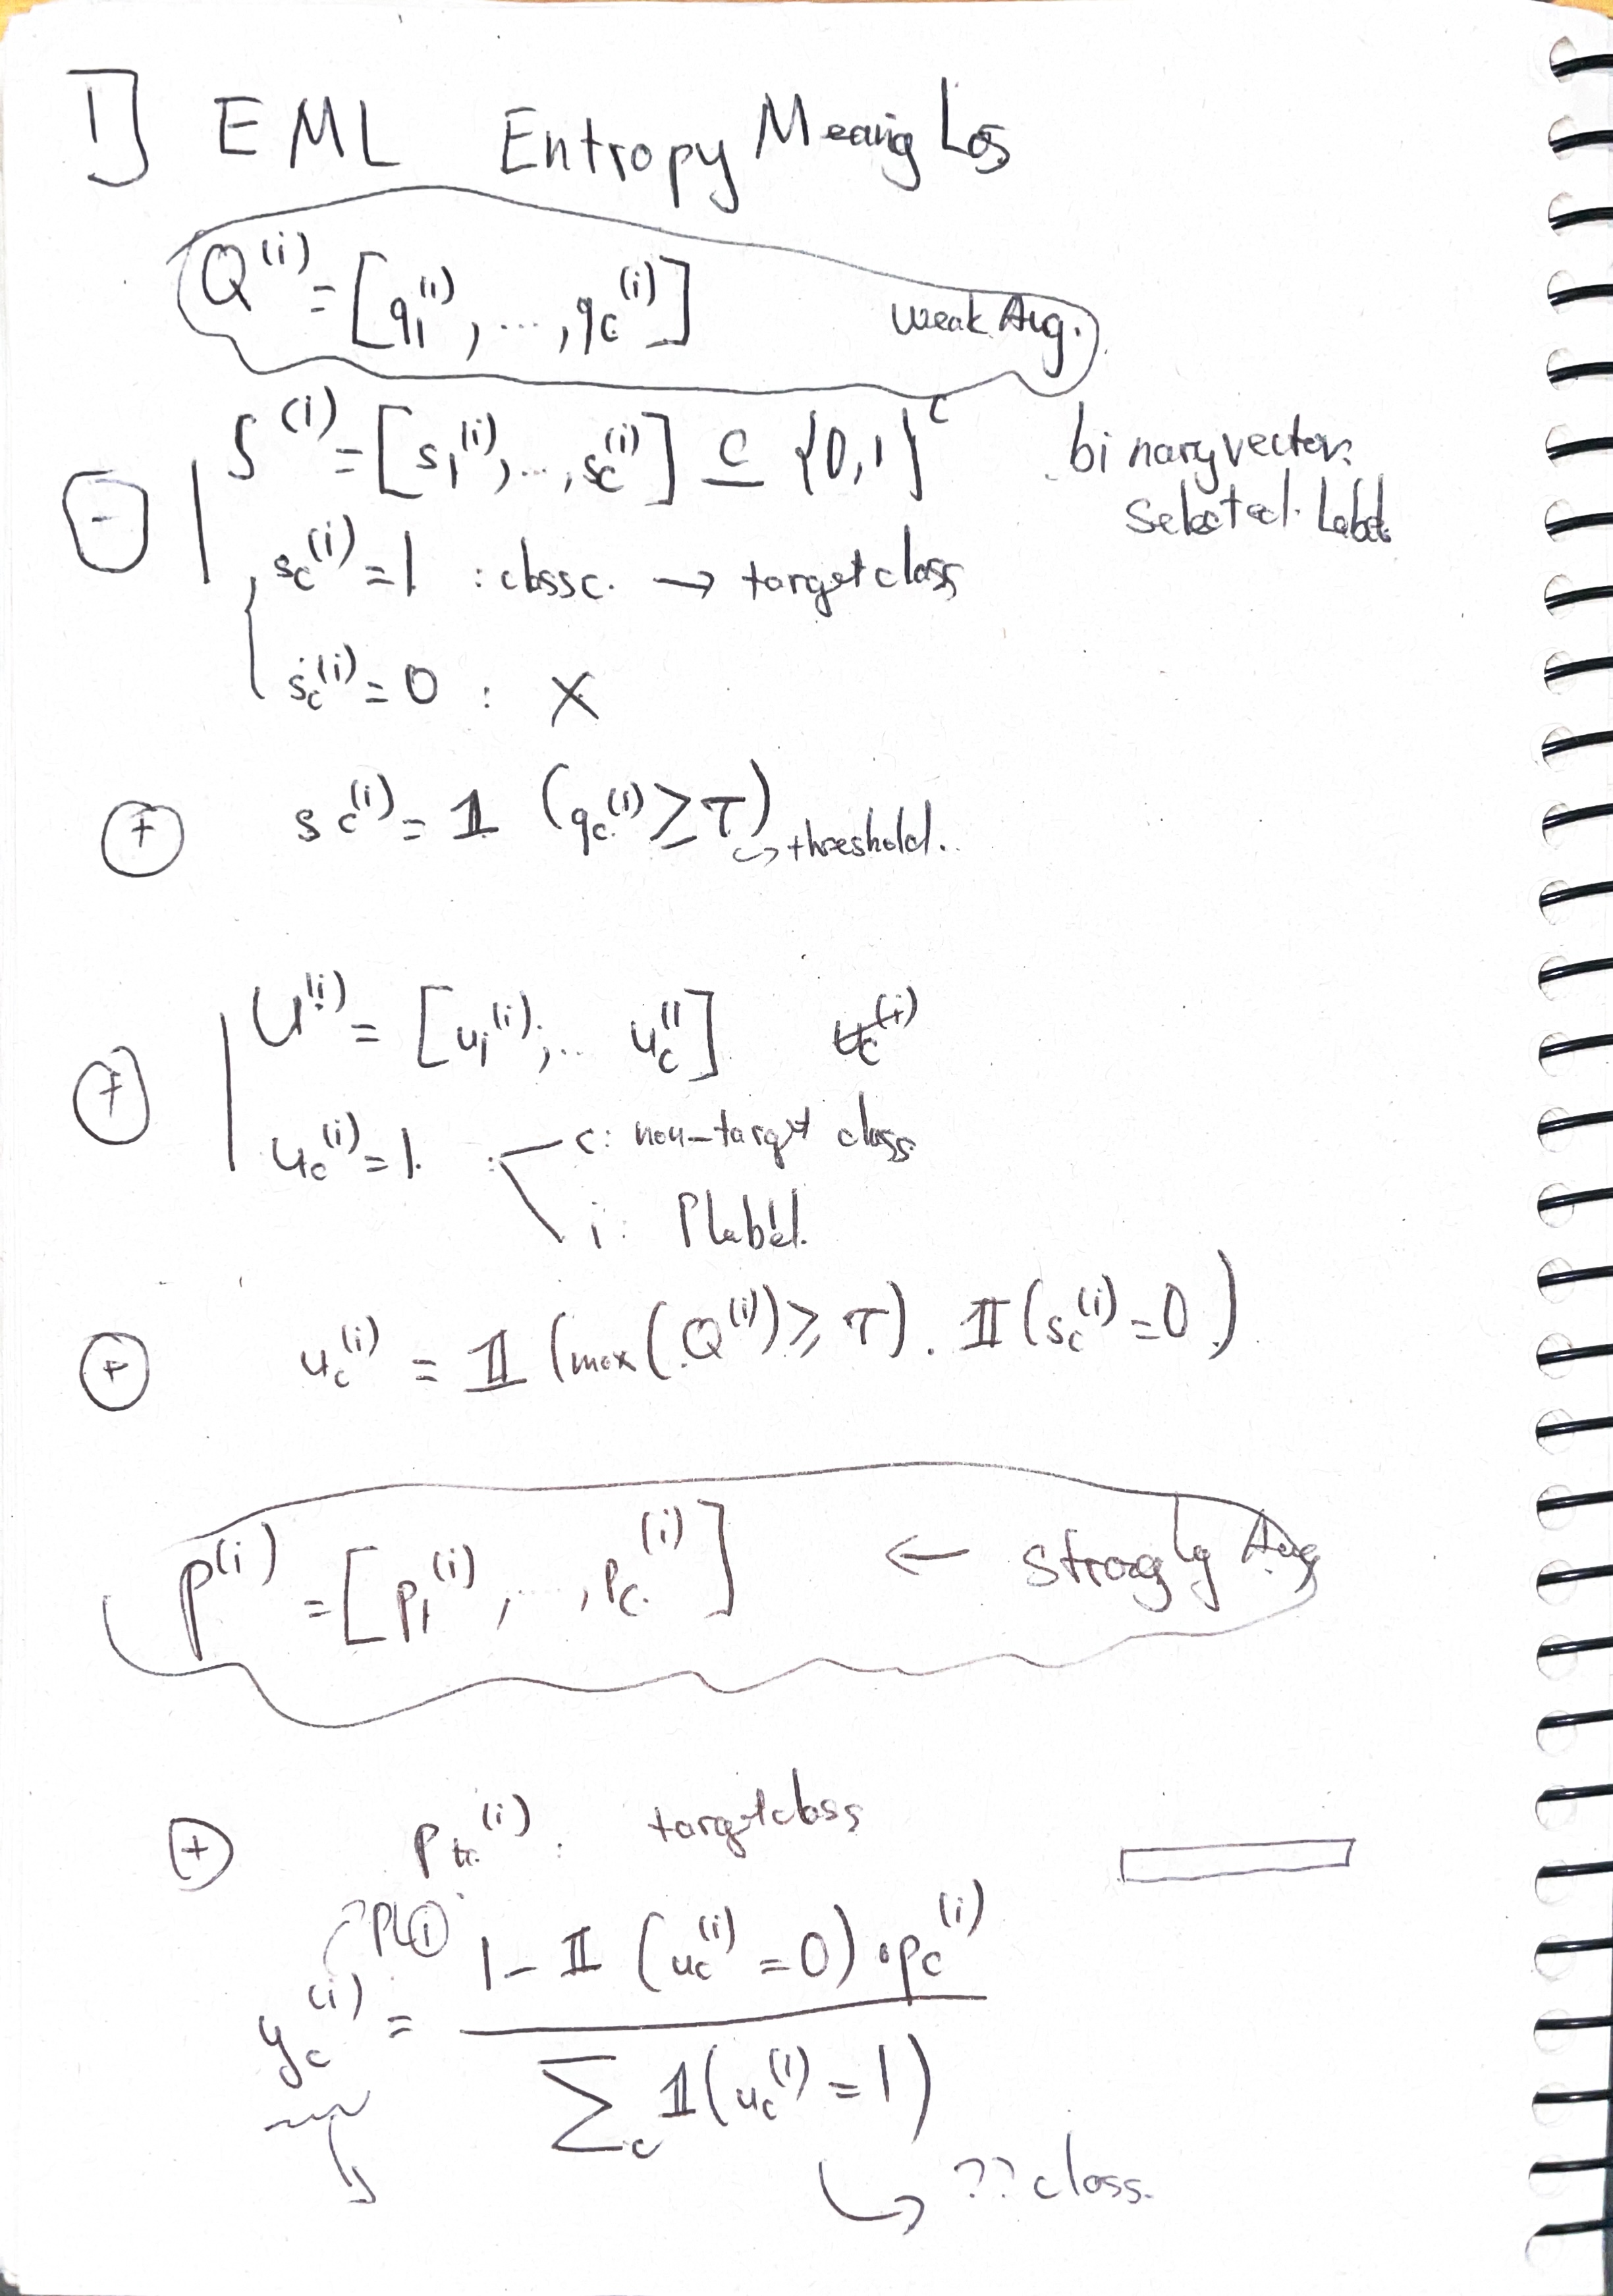 1] EML Entropy Meaning Loss
Q^(i) = [q_1^(i), ..., q_c^(i)] weak Aug.
S^(i) = [s_1^(i), ..., s_c^(i)] ⊆ {0,1}^C binary vector:
selected. Label
s_c^(i) = 1 : class c. → target class
s_c^(i) = 0 : X
+ s_c^(i) = 𝟙 (q_c^(i) ≥ τ) → threshold.
+ U^(i) = [u_1^(i), ... u_c^(i)]
u_c^(i) = 1 : c: non-target class
i: Plabel.
+ u_c^(i) = 𝟙 (max(Q^(i)) ≥ τ) . 𝟙 (s_c^(i) = 0)
P^(i) = [p_1^(i), ..., p_c^(i)] ← Strongly Aug
+ p_tc^(i) : target class
PL(i)
y_c^(i) = (1 - 𝟙 (u_c^(i) = 0) · p_c^(i)) / (∑_c 𝟙(u_c^(i) = 1))
→ ?? class.